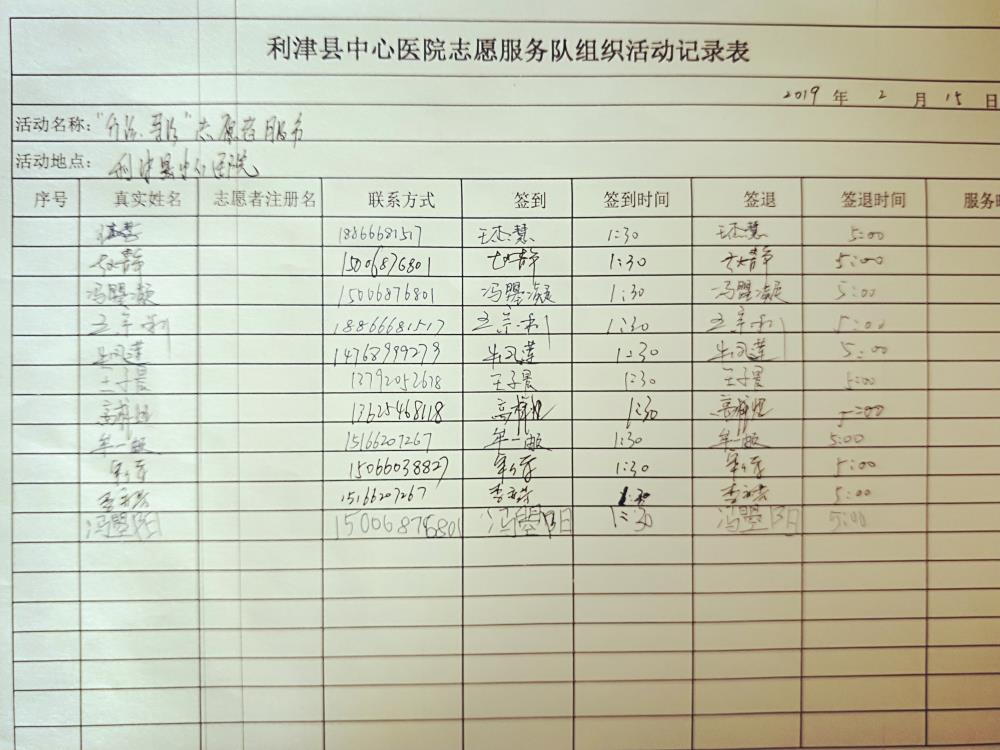 利津县中心医院志愿服务队组织活动记录表
2019 年 2 月 15 日
活动名称: 志愿者服务
活动地点: 利津县中心医院
序号 真实姓名 志愿者注册名 联系方式 签到 签到时间 签退 签退时间 服务时
18866681517 王杰慧 1:30 王杰慧 5:00
静 15006876801 静 1:30 静 5:00
冯曌凝 15006876801 冯曌凝 1:30 冯曌凝 5:00
王宗利 18866681517 王宗利 1:30 王宗利 5:00
牟凤莲 14768999279 牟凤莲 1:30 牟凤莲 5:00
王子晨 13792052678 王子晨 1:30 王子晨 5:00
高 13625468118 高 1:30 高 5:00
牟一敏 15166207267 牟一敏 1:30 牟一敏 5:00
15066038827 1:30 5:00
李 15166207267 李 1:30 李 5:00
冯曌阳 15006876801 冯曌阳 1:30 冯曌阳 5:00